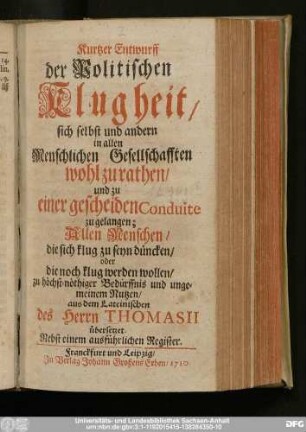 Kurtzer Entwurff
der Politischen
Klugheit/
sich selbst und andern
in allen
Menschlichen Gesellschafften
wohl zu rathen/
und zu
einer gescheiden Conduite
zu gelangen;
Allen Menschen/
die sich klug zu seyn düncken/
oder
die noch klug werden wollen/
zu höchst-nöthiger Bedürffnis und unge-
meinem Nutzen/
aus dem Lateinischen
des Herrn THOMASII
übersetzet.
Nebst einem ausführlichen Register.
Franckfurt und Leipzig/
In Verlag Johann Großens Erben/ 1710.
Universitäts- und Landesbibliothek Sachsen-Anhalt
DFG